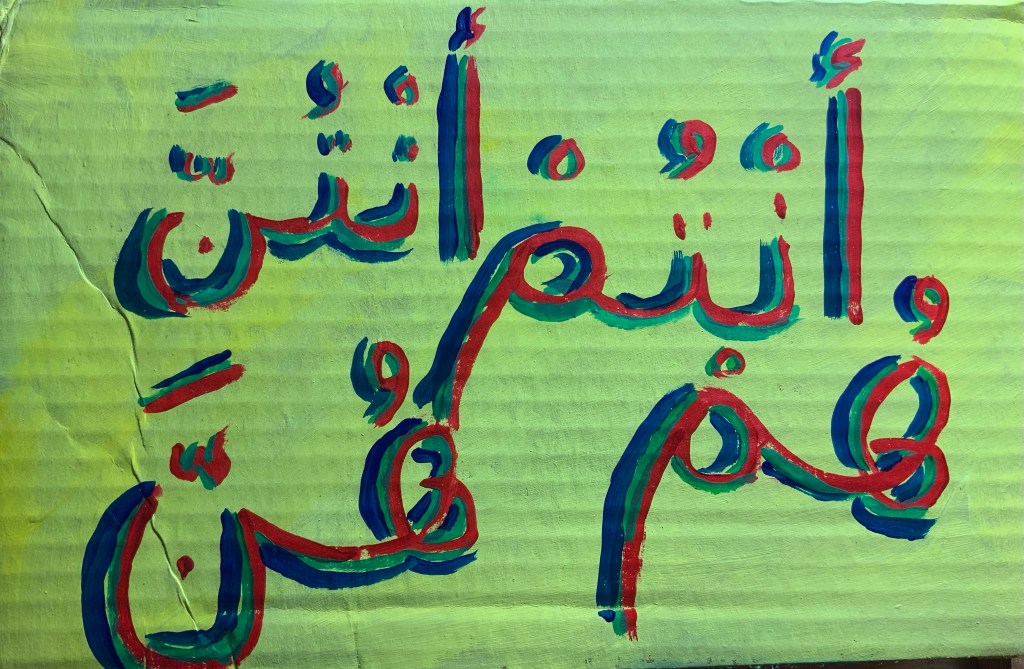 أَنْتُمْ أَنْتُنَّ
هُمْ هُنَّ